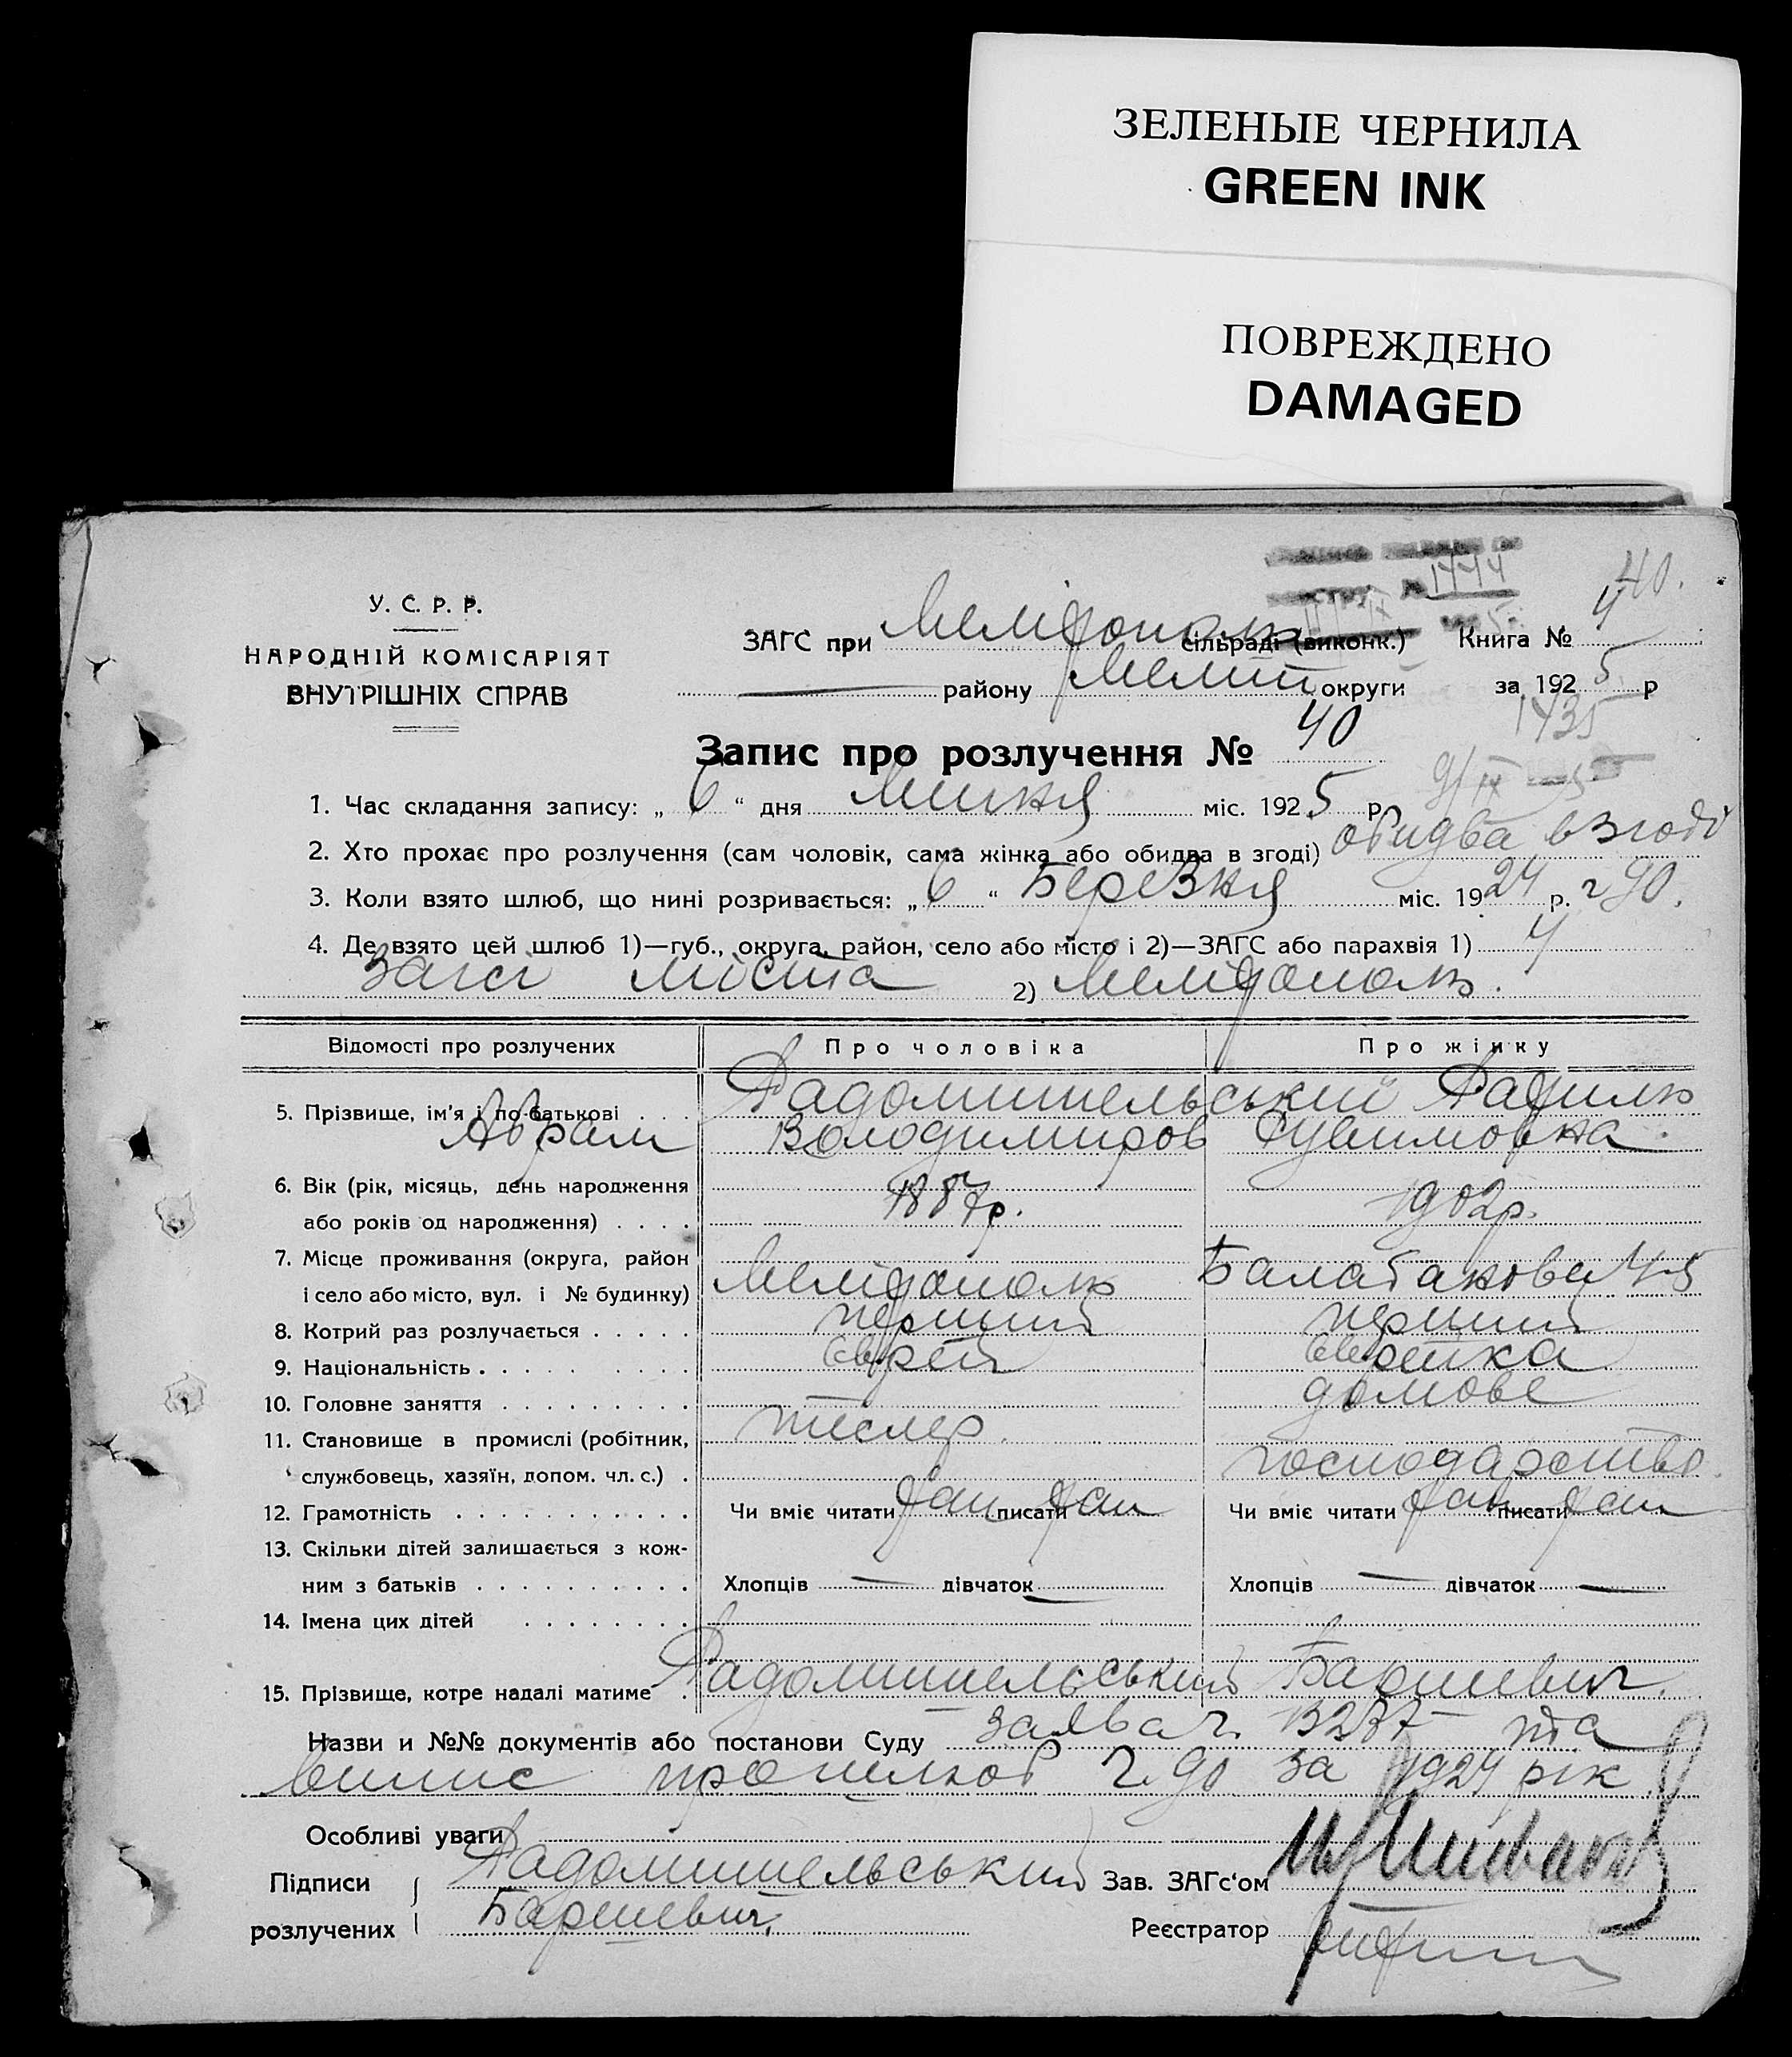 ЗЕЛЕНЫЕ ЧЕРНИЛА
GREEN INK
ПОВРЕЖДЕНО
DAMAGED
1444
40.
У. С. Р. Р.
НАРОДНІЙ КОМІСАРІЯТ
ВНУТРІШНІХ СПРАВ
ЗАГС при Мелітополь сільраді (виконк.) Книга № 4
району Меліт округи за 1925 р
1435
Запис про розлучення № 40
1. Час складання запису: „ 6 “ дня Липня міс. 1925 р
2. Хто прохає про розлучення (сам чоловік, сама жінка або обидва в згоді) обидва в згоді
3. Коли взято шлюб, що нині розривається: „ 6 “ Березня міс. 1924 р. ч 90.
4. Де взято цей шлюб 1)—губ., округа, район, село або місто і 2)—ЗАГС або парахвія 1) У
загсі міста 2) Мелітополь.
Відомості про розлучених Про чоловіка Про жінку
5. Прізвище, ім'я і по-батькові Радомишельський Рахиль
Абрам Володимиров Рувимовна
6. Вік (рік, місяць, день народження
або років од народження) 1887р. 1902р.
7. Місце проживання (округа, район
і село або місто, вул. і № будинку) Мелітополь Балабанова 45
8. Котрий раз розлучається перший перший
9. Національність Єврей Єврейка
10. Головне заняття домове
11. Становище в промислі (робітник, тесляр
службовець, хазяїн, допом. чл. с.) господарство
12. Грамотність Чи вміє читати Так писати Так Чи вміє читати Так писати Так
13. Скільки дітей залишається з кож-
ним з батьків Хлопців — дівчаток — Хлопців — дівчаток —
14. Імена цих дітей
15. Прізвище, котре надалі матиме Радомишельський Баршевич.
Назви и №№ документів або постанови Суду заява ч. 13237 та
випис про шлюб ч. 90 за 1924 рік
Особливі уваги
Підписи Радомишельський Зав. ЗАГс'ом
розлучених Баршевич Реєстратор